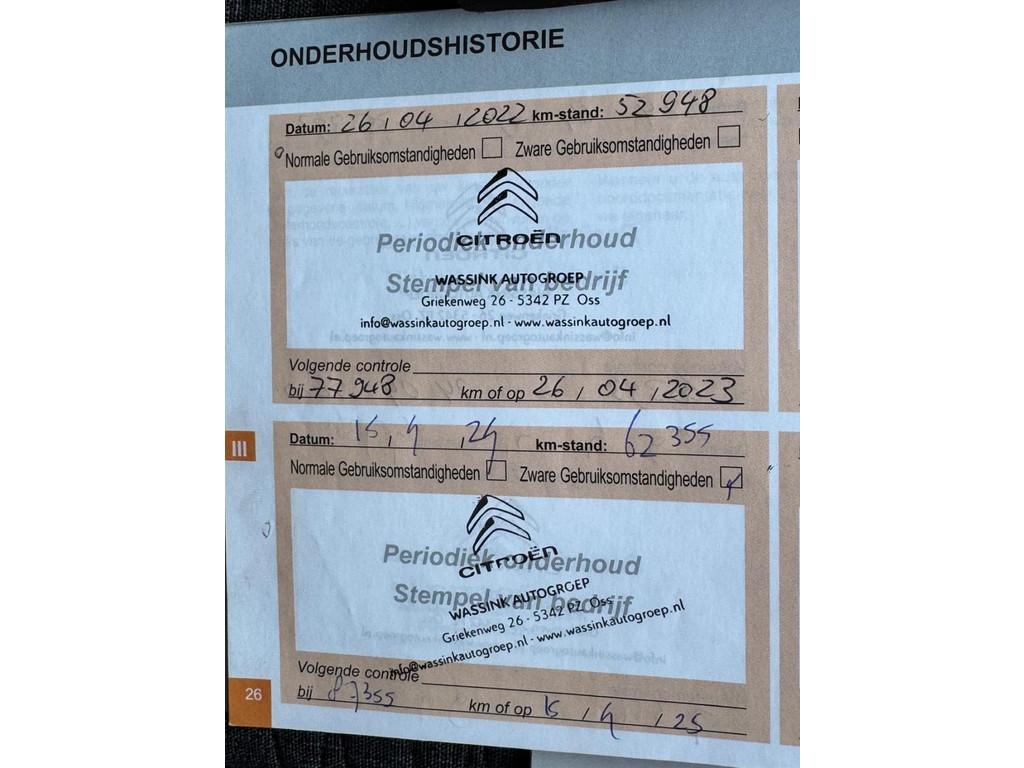 ONDERHOUDSHISTORIE
Datum: 26 / 04 / 2022 km-stand: 52 948
Normale Gebruiksomstandigheden Zware Gebruiksomstandigheden
CITROËN
Periodiek onderhoud
Stempel van bedrijf
WASSINK AUTOGROEP
Griekenweg 26 - 5342 PZ Oss
info@wassinkautogroep.nl - www.wassinkautogroep.nl
Volgende controle
bij 77 948 km of op 26 / 04 / 2023
III
Datum: 15 / 4 / 24 km-stand: 62 355
Normale Gebruiksomstandigheden Zware Gebruiksomstandigheden
CITROËN
Periodiek onderhoud
Stempel van bedrijf
WASSINK AUTOGROEP
Griekenweg 26 - 5342 PZ Oss
info@wassinkautogroep.nl - www.wassinkautogroep.nl
Volgende controle
bij 87355 km of op 15 / 4 / 25
26